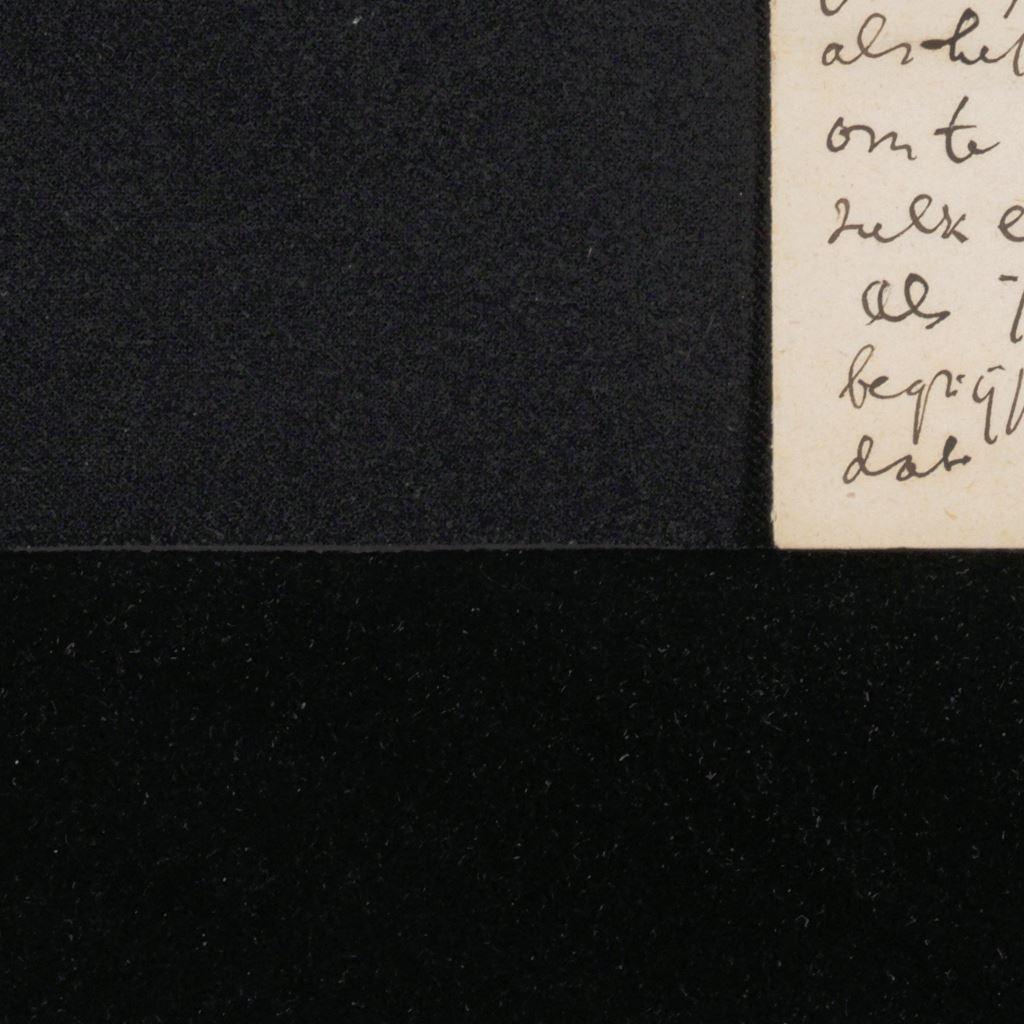 als het
om te
zulk e
als
begrijp
dat